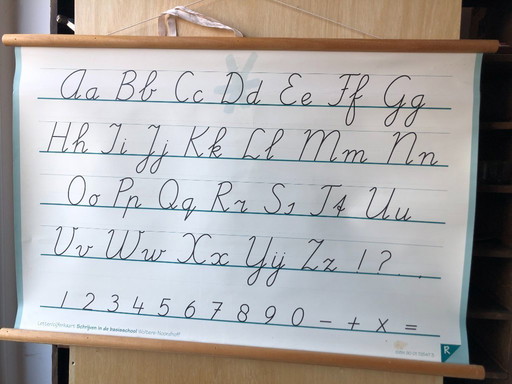 Aa Bb Cc Dd Ee Ff Gg
Hh Ii Jj Kk Ll Mm Nn
Oo Pp Qq Rr Ss Tt Uu
Vv Ww Xx IJij Zz ! ? . ,
1 2 3 4 5 6 7 8 9 0 - + x =
Letter/cijferkaart Schrijven in de basisschool Wolters-Noordhoff
R